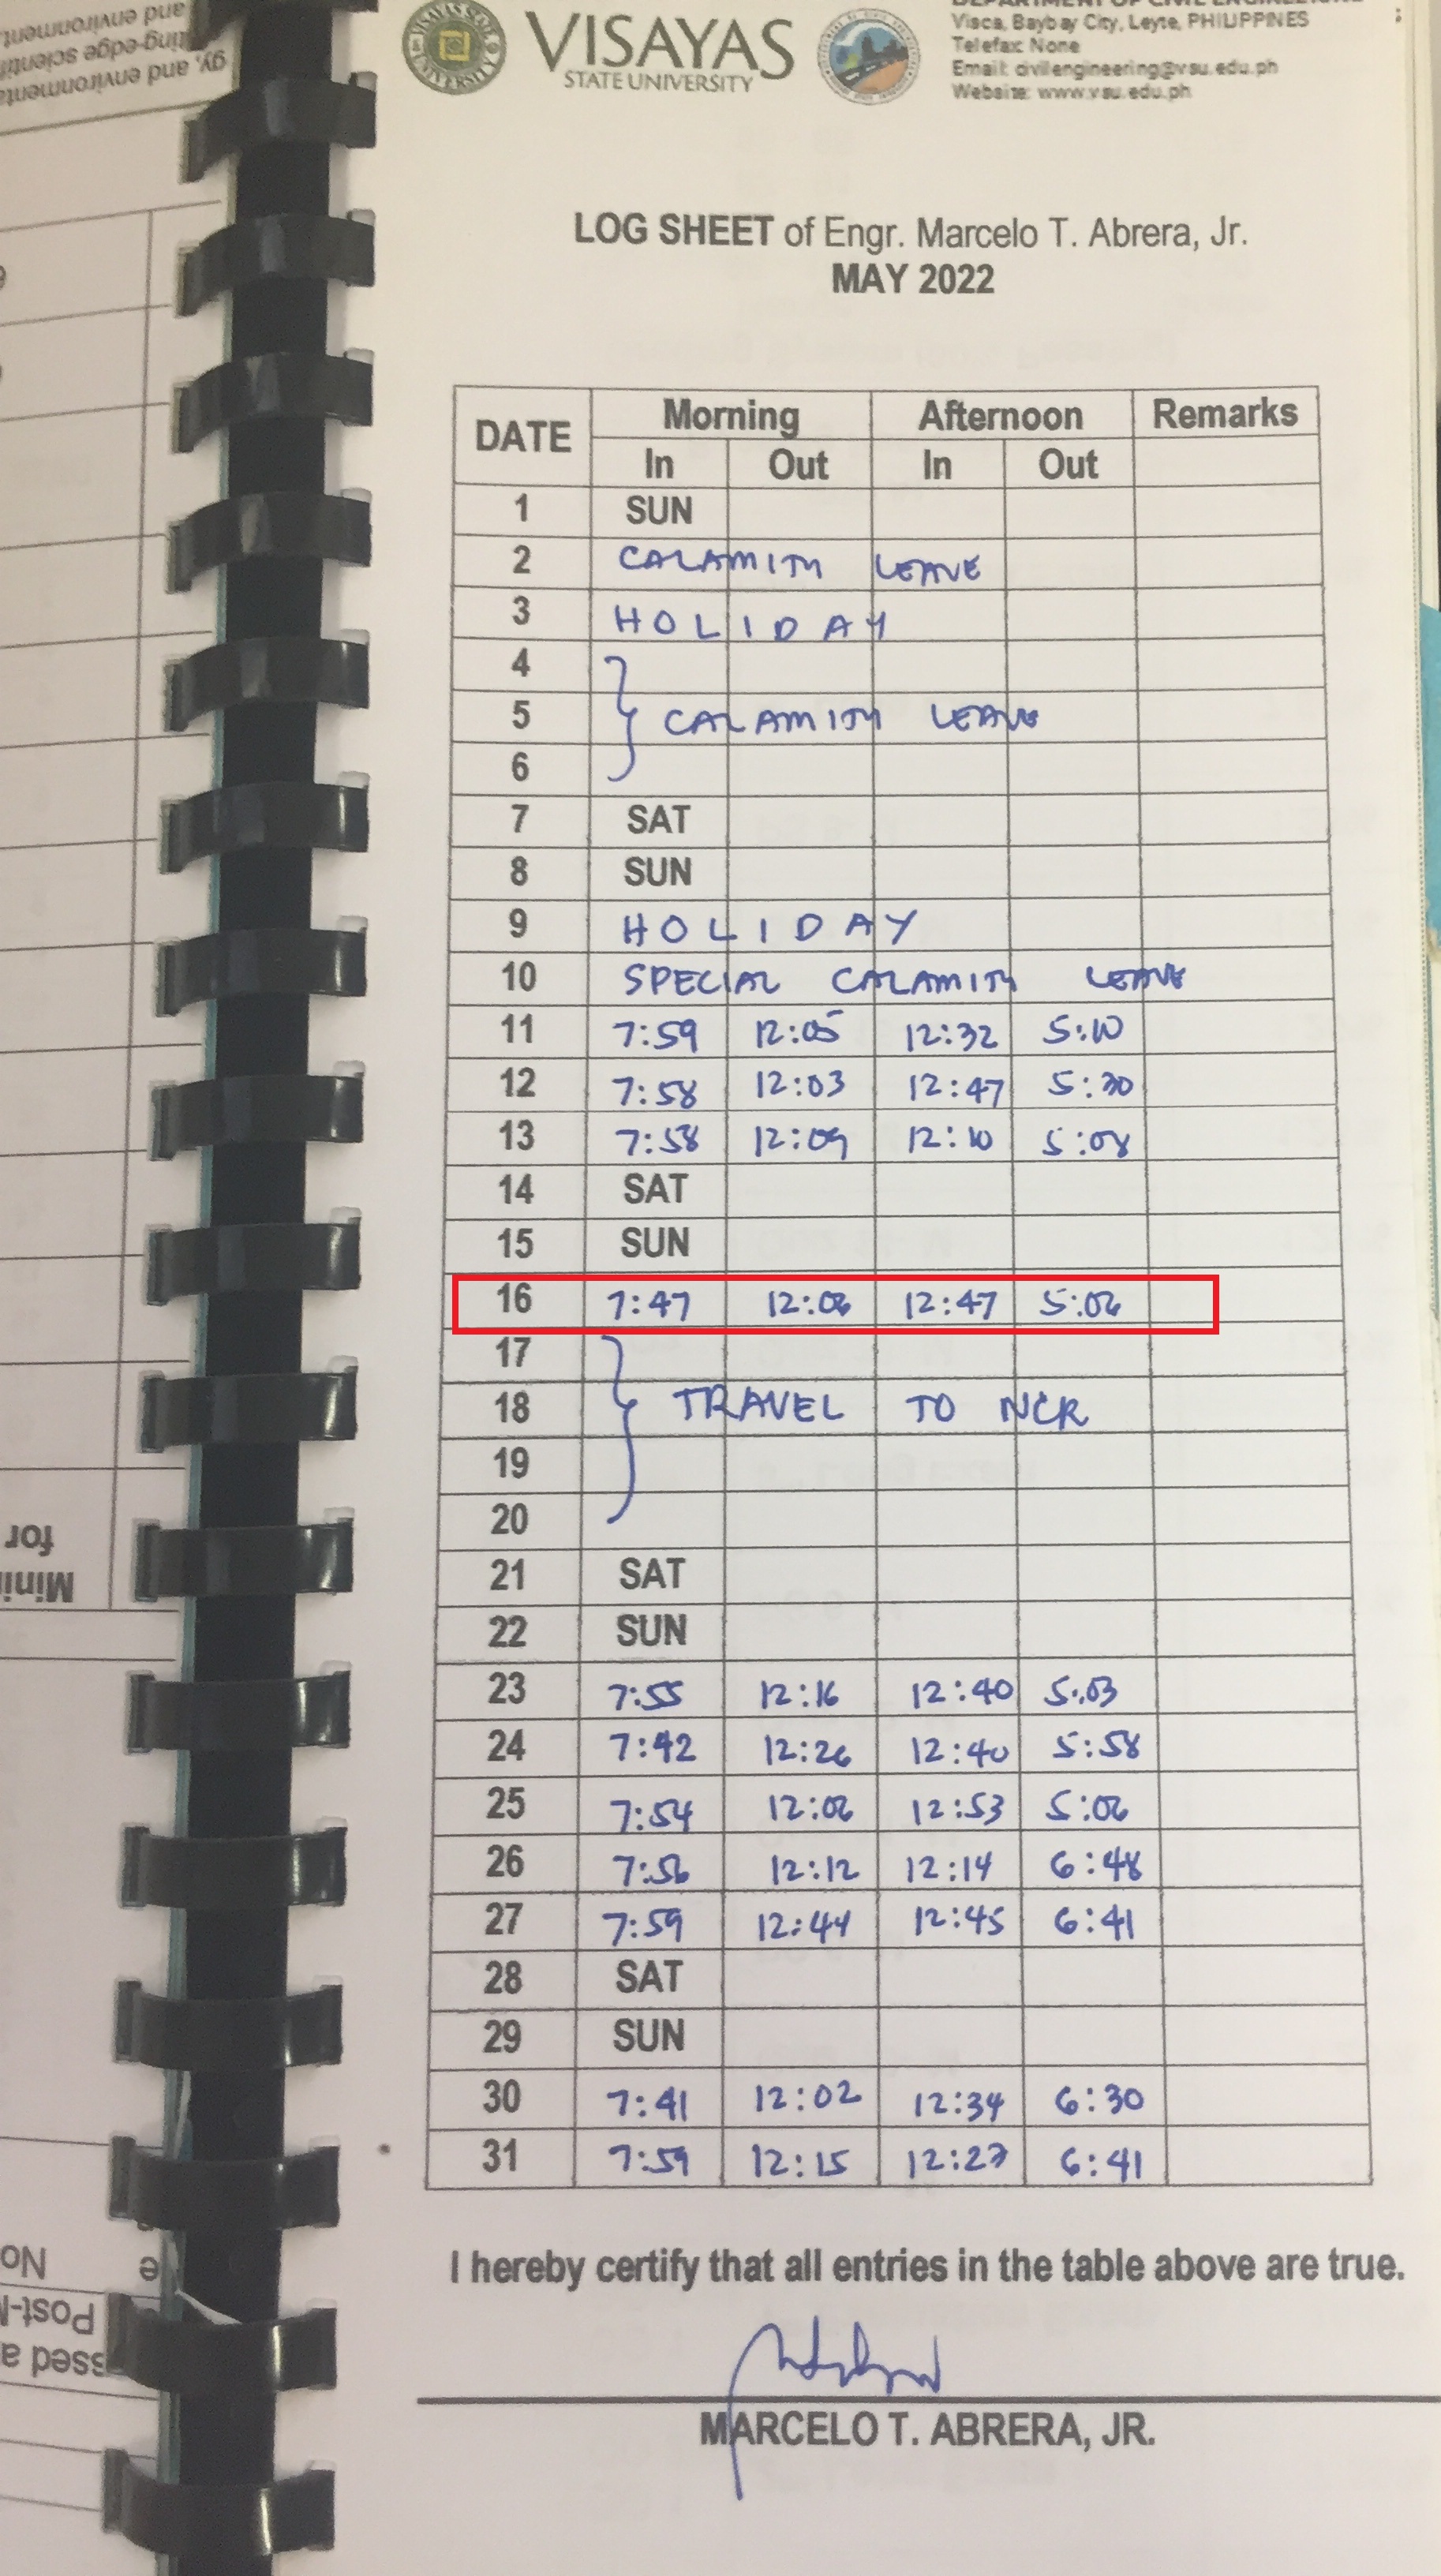 and environment.
ting-edge scienti
gy, and environmenta
VISAYAS
STATE UNIVERSITY
VISAYAS STATE UNIVERSITY
Visca, Baybay City, Leyte, PHILIPPINES
Telefax: None
Email: civilengineering@vsu.edu.ph
Website: www.vsu.edu.ph
LOG SHEET of Engr. Marcelo T. Abrera, Jr.
MAY 2022
DATE Morning Afternoon Remarks
In Out In Out
1 SUN
2 CALAMITY LEAVE
3 HOLIDAY
4
5 CALAMITY LEAVE
6
7 SAT
8 SUN
9 HOLIDAY
10 SPECIAL CALAMITY LEAVE
11 7:59 12:05 12:32 5:10
12 7:58 12:03 12:47 5:30
13 7:58 12:09 12:10 5:08
14 SAT
15 SUN
16 7:47 12:06 12:47 5:06
17
18 TRAVEL TO NCR
19
20
21 SAT
22 SUN
23 7:55 12:16 12:40 5:03
24 7:42 12:26 12:40 5:58
25 7:54 12:06 12:53 5:06
26 7:56 12:12 12:14 6:48
27 7:59 12:44 12:45 6:41
28 SAT
29 SUN
30 7:41 12:02 12:34 6:30
31 7:59 12:15 12:27 6:41
I hereby certify that all entries in the table above are true.
MARCELO T. ABRERA, JR.
for
Mini
No
Post-
ssed a